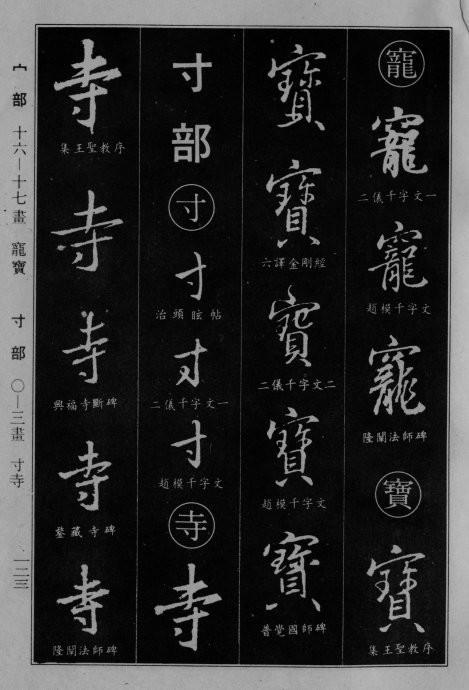 寵
寵
二儀千字文一
寵
趙模千字文
寵
隆闡法師碑
寶
寶
集王聖教序
寶
寶
六譯金剛經
寶
二儀千字文二
寶
趙模千字文
寶
普覺國師碑
寸部
寸
寸
治頭眩帖
寸
二儀千字文一
寸
趙模千字文
寺
寺
寺
集王聖教序
寺
寺
興福寺斷碑
寺
鍳藏寺碑
寺
隆闡法師碑
宀部 十六—十七畫 寵寶 寸部 〇—三畫 寸寺
一二三